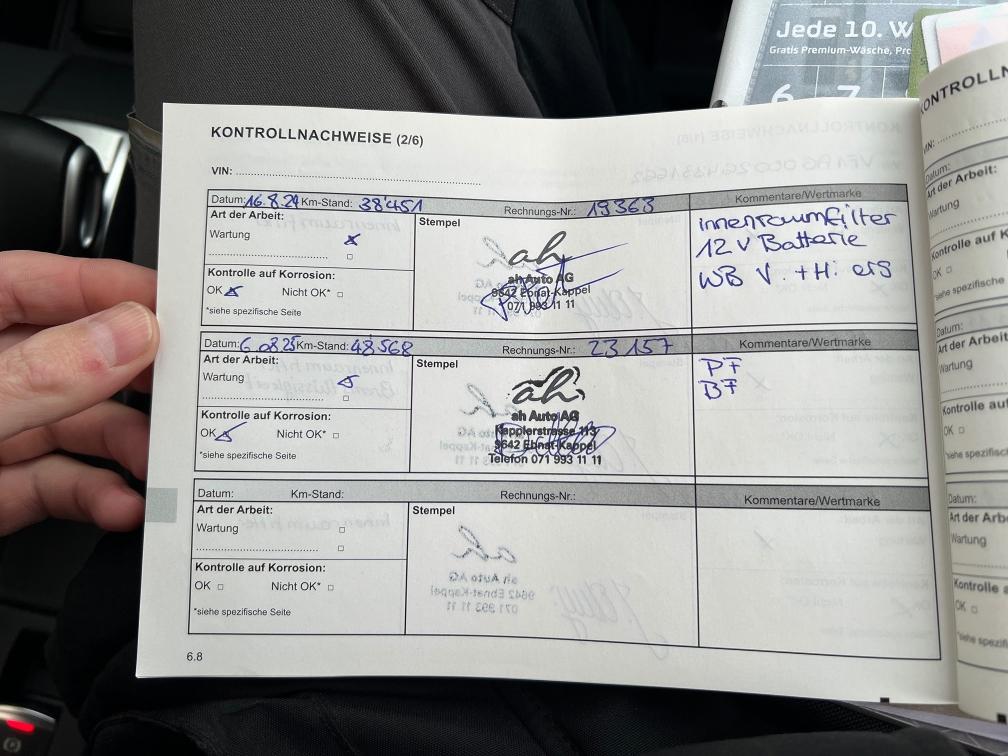 Jede 10. W
Gratis Premium-Wäsche, Pro
6 7
KONTROLLNACHWEISE (2/6)
VIN:
Datum: 16.8.24 Km-Stand: 38'451 Rechnungs-Nr.: 19363 Kommentare/Wertmarke
Art der Arbeit: Stempel
Wartung
Kontrolle auf Korrosion:
OK Nicht OK*
*siehe spezifische Seite
ah
ah Auto AG
9642 Ebnat-Kappel
071 993 11 11
innenraumfilter
12 V Batterie
WB V. + Hi. ers
Datum: 6.08.25 Km-Stand: 48'568 Rechnungs-Nr.: 23157 Kommentare/Wertmarke
Art der Arbeit: Stempel
Wartung
Kontrolle auf Korrosion:
OK Nicht OK*
*siehe spezifische Seite
ah
ah Auto AG
Kapplerstrasse 113
9642 Ebnat-Kappel
Telefon 071 993 11 11
PF
BF
Datum: Km-Stand: Rechnungs-Nr.: Kommentare/Wertmarke
Art der Arbeit: Stempel
Wartung
Kontrolle auf Korrosion:
OK Nicht OK*
*siehe spezifische Seite
6.8
KONTROLLN
VIN:
Datum:
Art der Arbeit:
Wartung
Kontrolle auf K
OK
*siehe spezifisc
Datum:
Art der Arbeit
Wartung
Kontrolle auf
OK
*siehe spezifisc
Datum:
Art der Arb
Wartung
Kontrolle a
OK
*siehe spezifi